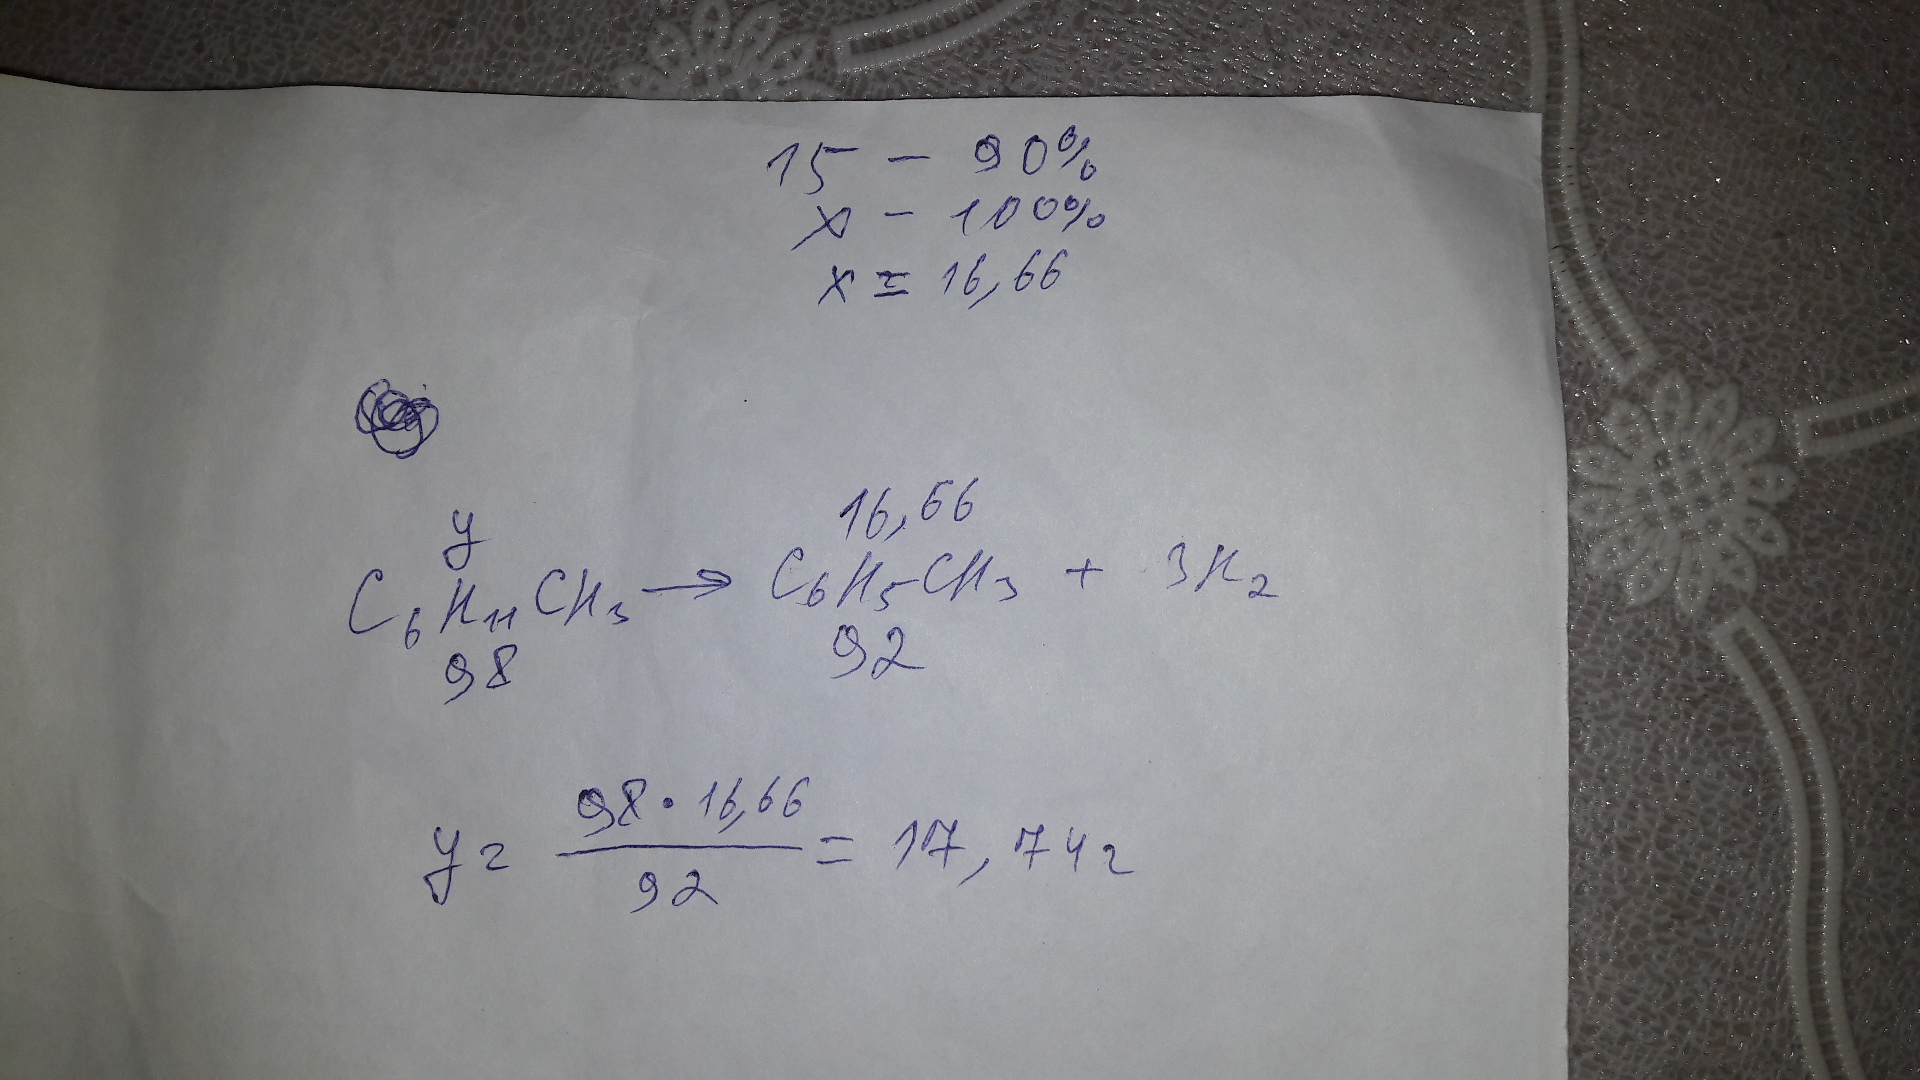 15 – 90%
x – 100%
x = 16,66
y 16,66
C₆H₁₁CH₃ → C₆H₅CH₃ + 3H₂
98 92
98 · 16,66
y = ――― = 17,74 г
92